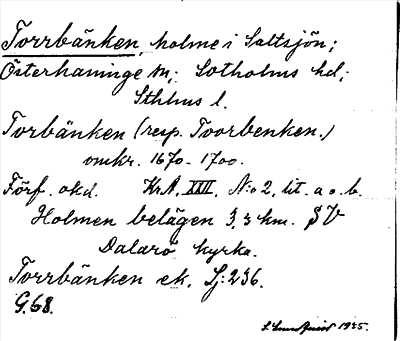 Torrbänken, holme i Saltsjön;
Österhaninge sn; Sotholms hd;
Sthlms l.
Torbänken (resp. Toorbenken.)
omkr. 1670-1700.
Förf. okd. KrA. XXII. N:o 2, lit. a o. b.
Holmen belägen 3,3 km. SV
Dalarö kyrka.
Torrbänken ek. Lj: 236.
G.68.
1925.